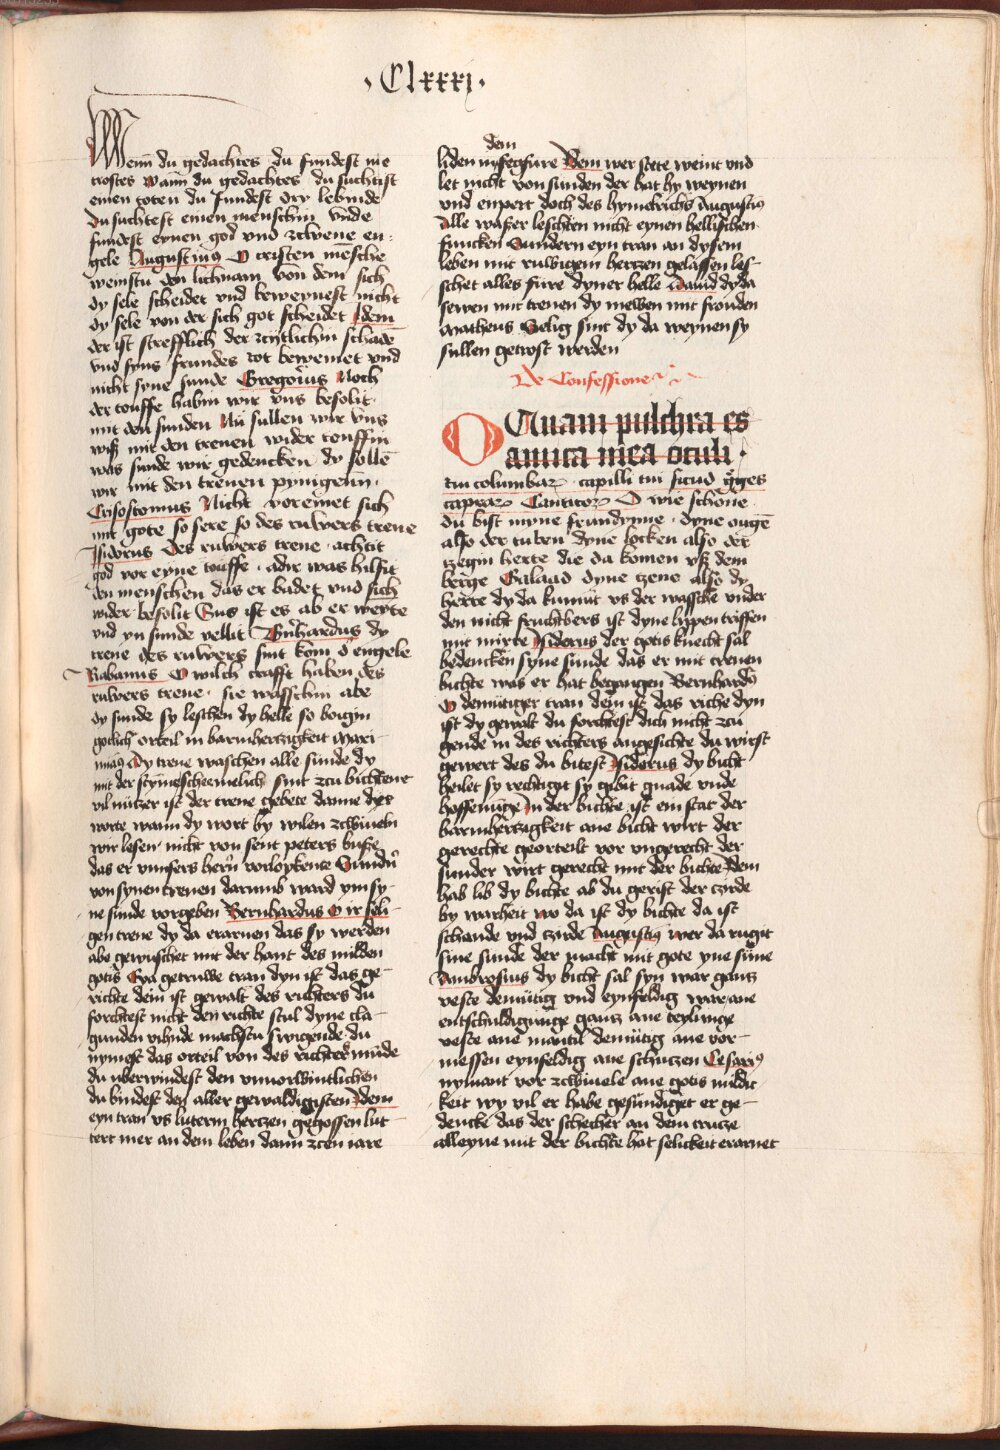 · Clxxxi ·
Wenn du gedachtes du fundest nie
trostes Wann du gedachtes du suchtist
einen toten du fundest dry lebinde
du suchtest einen menschin vnde
fundest eynen god vnd zcwene en-
gele Augustinus O cristen mensche
weinstu den lichnam von dem sich
dy sele scheidet vnd beweynest nicht
dy sele von der sich got scheidet Idem
der ist strefflich der zcytlichin schadē
vnd syns frundes tot beweinet vnd
nicht syne sunde Gregorius Noch
der touffe habin wir vns besolit
mit den sunden Nu sullen wir vns
mit den trenen wider touffin
was sunde wir gedencken dy sollē
wir mit den trenen pynigenn ·
Crisostomus Nicht voreinet sich
mit gote so sere so des ruwers trene
Isidorus Des ruwers trene achtit
god vor eyne touffe · adir was hilfit
den menschen das er badet vnd sich
wider besolit Sus ist es ab er weyte
vnd yn sunde vellit Bernhardus dy
trene des ruwers sint kom d engele
Rabanus O wilch crafft haben des
ruwers trene · sie wasschin abe
dy sunde sy leschen dy helle so boigin
gotlich orteil in barmhertzigkeit Maxi-
mus Dy trene waschen alle sunde dy
mit der stymme schemelich sint zcu bichtene
vil nützer ist der trene gebete danne dyes
worte wann dy wort by wilen zcwiueln
wir lesen nicht von sent peters buße
das er vnnsers hern vorloykente Sundern
von synen trenen darumb ward ym sy-
ne sunde vorgeben Bernhardus O ir seli-
gen trene dy da erarnen das sy werden
abe gewischet mit der hant des milden
gotis Eya getruwe tran dyn ist das ge-
richte dein ist gewalt des richters du
forchtest nicht den richte stul dyne cla-
gunden vihnde machstu swigende du
nymest das orteil von des richters munde
du uberwindest den vnuorwintlichen
du bindest den aller gewaldigisten Idem
eyn tran vs luterm hertzen gegossen lut
tert mer an dem leben dann zcen iare
dem
liden im fegfure Idem wer stete weint vnd
let nicht von sunden der hat hy weynen
vnd enpert doch des hymelrichs Augustinus
Alle waßer leschten nicht eynen hellischen
funcken Sundern eyn tran an dysem
leben mit ruwigem hertzen gelassen les-
schet alles fure dyner helle Dauid dy da
sewen mit trenen dy mewen mit frouden
Matheus Selig sint dy da weynen sy
sullen getrost werden
De Confessione
O Quam pulchra es
amica mea oculi ·
tui columbarum · capilli tui sicud greges
caprarum Canticorum O wie schone
du bist myne frundynne · dyne ougē
also der tuben dyne locken also der
czegin herte die da komen vß dem
berge Galaad dyne czene also dy
herte dy da kumüt vs der wassche vnder
den nicht fruchtbers ist dyne lippen triffen
mit mirre Isidorus der gotis knecht sal
bedencken syne sunde das er mit trenen
bichte was er hat begangen Bernhardus
O demütiger tran dein ist das riche dyn
ist dy gewalt du forchtest dich nicht zcu
gende in des richters angesichte du wirst
gewert des du bitest Isidorus dy bicht
heilet sy rechtigit sy gibit gnade vnde
hoffenunge In der bichte ist ein stat der
barmhertzigkeit ane bicht wirt der
gerechte georteilt vor vngerecht der
sunder wirt gerecht mit der bichte Idem
hab lib dy bichte ab du gerist der czirde
by warheit wo da ist dy bichte da ist
schande vnd czirde Augustinus wer da rugit
sine sunde der macht mit gote yne sune
Ambrosius dy bicht sal syn war gantz
veste demütig vnd eynfeldig war ane
entschuldigunge gantz ane teylunge
veste ane mantil demütig ane vor-
messen eynfeldig ane schutzen Cesarius
nymant vor zcwiuele ane gotis mildic
keit wy vil er habe gesundiget er ge-
dencke das der schecher an dem cruze
alleyne mit der bichte hat selickeit erarnet